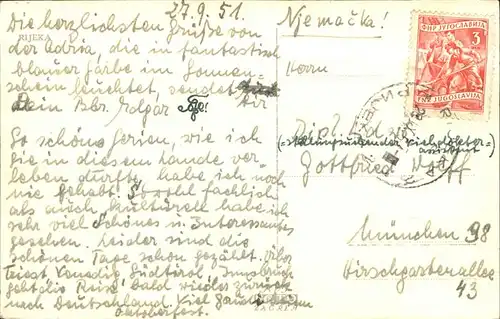 27.9.51.
Die herzlichsten Grüße von
der Adria, die in fantastisch
blauer Farbe im Sonnen-
schein leuchtet, sendet Dir
Dein Bbr. Edgar
So schöne Ferien, wie ich
sie in diesem Lande ver-
leben durfte, habe ich noch
nie gehabt. Sowohl fachlich
als auch kulturell habe ich
sehr viel Schönes u. Interessantes
gesehen. Leider sind die
schönen Tage schon gezählt. Über
Triest Venedig Südtirol, Innsbruck
geht die Reise bald wieder zurück
nach Deutschland. Viel
Oktoberfest.
RIJEKA
Njemačka!
ФНР ЈУГОСЛАВИЈА
3
FNR JUGOSLAVIJA
Herrn
Gottfried
München 98
Hirschgartenallee
43
ZAGREB